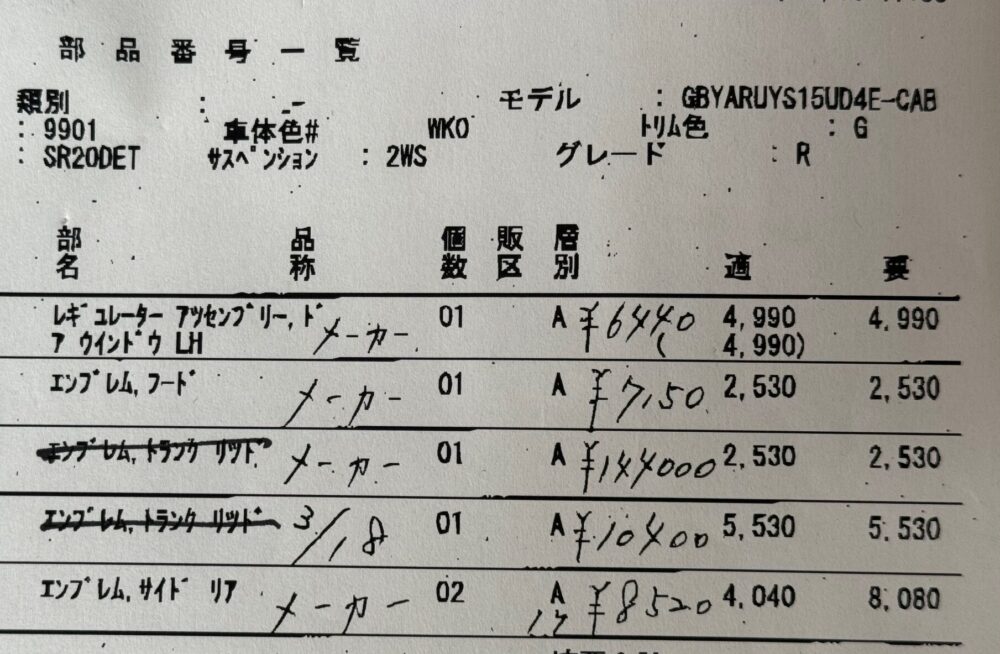 部品番号一覧
類別 : -
モデル : GBYARUYS15UD4E-CAB
: 9901 車体色# WK0 トリム色 : G
: SR20DET サスペンション : 2WS グレード : R
部品名称 個数 販区 層別 適 要
レギュレーター アツセンブリー,ド メーカー 01 A ¥6440 4,990 4,990
ア ウインドウ LH ( 4,990)
エンブレム,フード メーカー 01 A ¥7,150 2,530 2,530
エンブレム,トランク リツド メーカー 01 A ¥144000 2,530 2,530
エンブレム,トランク リツド 3/18 01 A ¥10400 5,530 5,530
エンブレム,サイド リア メーカー 02 A ¥8520 4,040 8,080